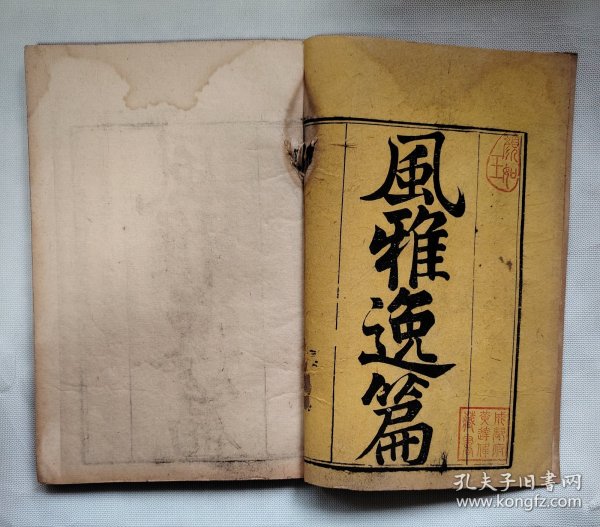 風雅逸篇
孔夫子旧书网
www.kongfz.com